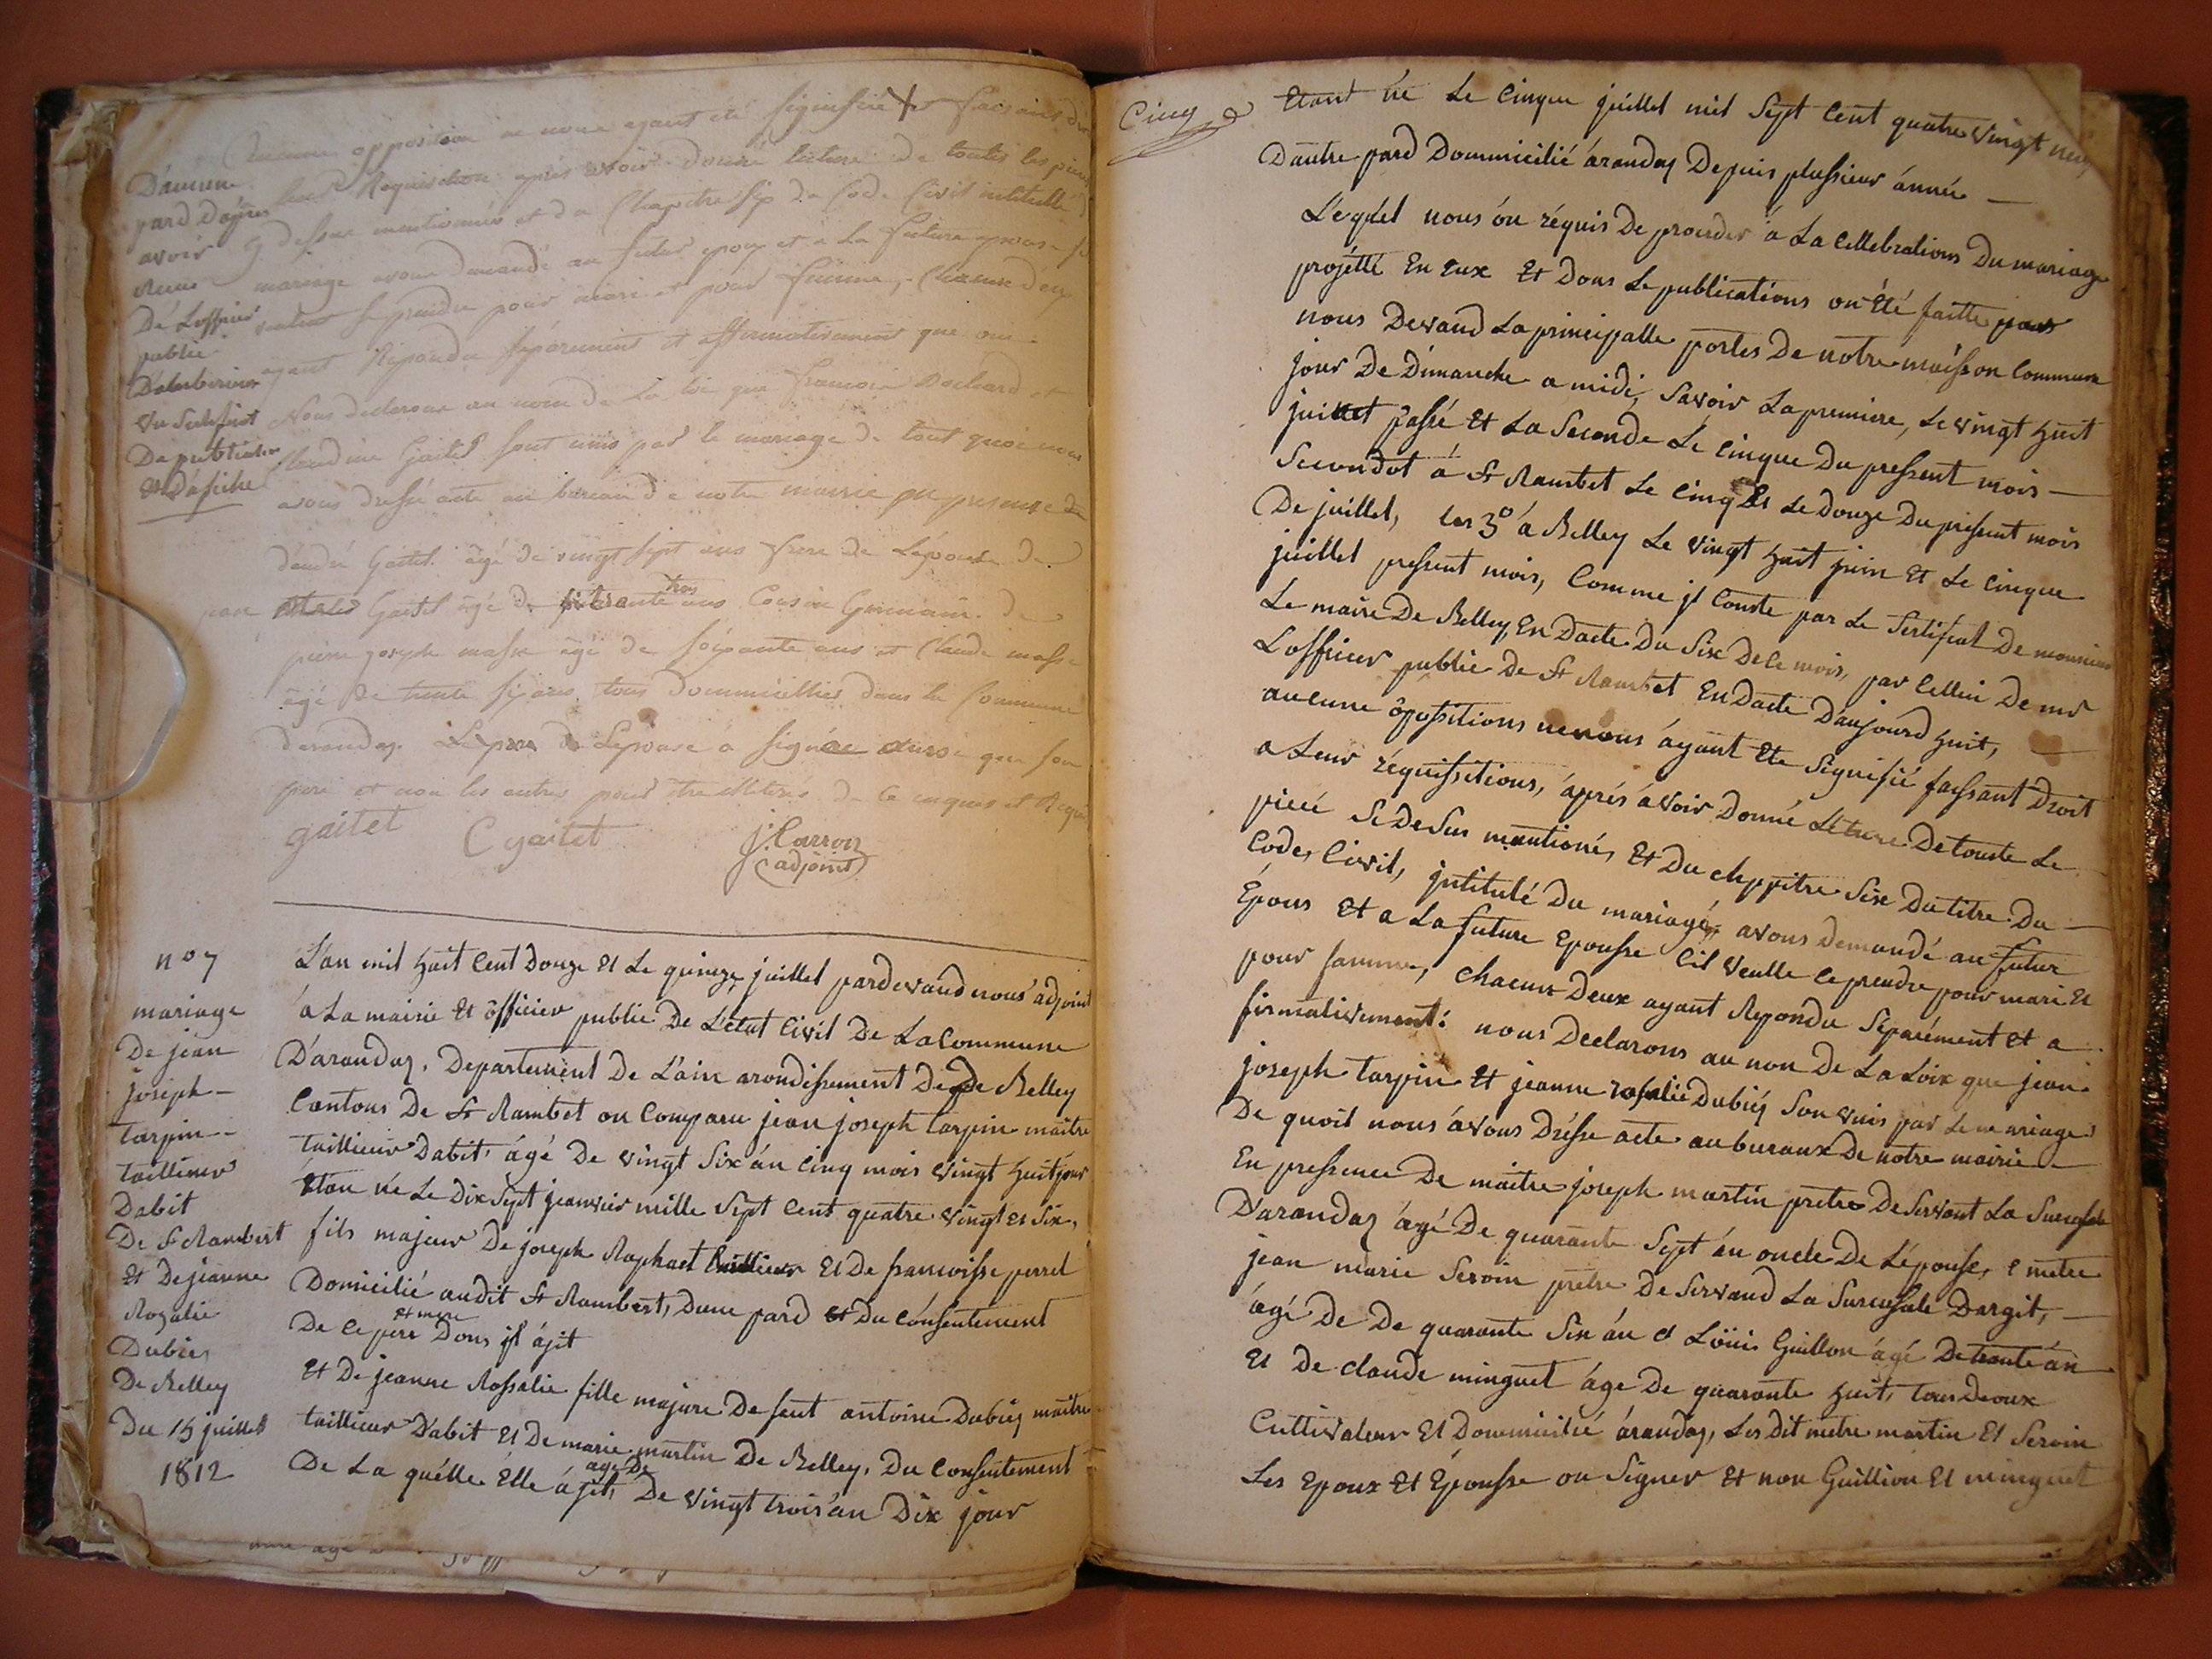 Aucune opposition ne nous ayant été signifiée faisant
leur Requisition après avoir donné lecture de toutes les pieces
cy dessus mentionnées et du Chapitre six du Code Civil intitullé
mariage avons demandé au futur epoux et a la future epouse
veulent se prendre pour mari et pour femme, Chacun d'eux
ayant Repondu séparement et affirmativement que oui
Nous declarons au nom de la loi que francois Dochard et
Claudine Gaitet sont unis par le mariage de tout quoi nous
avons dressé acte au bureau de notre mairie en presence de
d'andré Gaitet agé de vingt sept ans frere de Lépouse de
Gaitet âgé de ante trois ans Cousin Germain de
pierre joseph masse âgé de soixante ans et Claude masse
âgé de trente six ans, tous dommicilliés dans la Commune
darandas. Lepouse à signé ainsi que son
pere et non les autres pour être illetérés de ce enquis et Requis
gaitet C gaitet j. Carron
adjoint
D'aucune
pard D'apres
avoir
De Loffisier
public
D'ambérieux
De publication
Et D'afiche
n° 7
mariage
De jean
joseph -
tarpin --
taillieur
Dabit
De St Rambert
Et De jeanne
Rozalie
Dubiez
De Belley
Du 15 juillet
1812
L'an mil huit Cent Douze Et Le quinze juillet pardevand nous adjoint
à La mairie Et officier public De L'état Civil De La Commune
D'arandaz, Departement De L'ain arondissement De De Belley
Cantons De St Rambet on Comparu jean joseph tarpin maitre
taillieur Dabit, ágé De vingt Six án cinq mois vingt huit jour
étan né Le Dix Sept jeanvier mille Sept Cent quatre vingt et Six,
fils majeur De joseph Raphael Et De francoisse perret
Domicilié audit St Rambert, Dune pard Et Du Consentement
De Ce pere et mere Dons jl ájit
Et De jeanne Rossalie fille majure De feut antoine Dubiez maitre
taillieur D'abit Et De marie martin De Belley, Du Consentement
De La quélle élle ájit, agé De De vingt trois án Dix jour
Cinq
Etant né Le Cinque juillet mil Sept Cent quatre vingt neuf
D'autre pard Dommicilié árandaz Depuis plussieur ánnée -
L'equel nous ón réquis De proceder á La Cellebrations Du mariage
projétté En Eux Et Dons Le publications on été faitte par
nous Devand La principalle portes De notre maisson Commune
jour De Dimanche a midi, Savoir La premiere, Le vingt huit
juillet passé Et La Seconde Le Cinque Du pressent mois -
Secondot á St Rambet Le Cinq Et Le Douze Du present mois
De juillet, les 3° á Belley Le vingt huit juin Et Le Cinque
juillet pressent mois, Comme jl Conste par Le Sertificat De monsieur
Le maire De Belley, En Date Du Six De Ce mois, par Cellui De mr
L'officier public De St Rambet En Date D'aujourd huit,
aucune ópossitions ne nous áyant Ete Signifié faissant Droit
a Leur réquissitions, áprés ávoir Donné Létture De toute Le
piecé Si De Sus mantionés Et Du chppitre Six Du titre Du -
Code Civil, jntitulé Du mariagé, avons Demandé au futur
Epous Et a La future Epousse Cil veulle Ce prendre pour mari Et
pour famme, Chacun Deux ayant Repondu Séparément Et a
firmativement: nous Declarons au non De La Loix que jean
joseph tarpin Et jeanne rosalie Dubiéz Son unis par Le mariage
De quoit nous ávons Drésse acte au buraux De notre mairie -
En pressence De maitre joseph martin pretre Deservant La Sucursale
D'arandaz ágé De quarante Sept án oncle De L'épousse, e metre
jean marie Seroin prêtre De Servaud La Surcusale Dargit, -
ágé De De quarante Six án et Loüis Guillon ágé De trante án
Et De claude minguet áge De quarante huit, tous Deoux
Cultivateur Et Dommicilié árandaz, Les Dit metre martin Et Seroin
Les Epoux Et Épousse on Signer Et non Guillion Et minguet